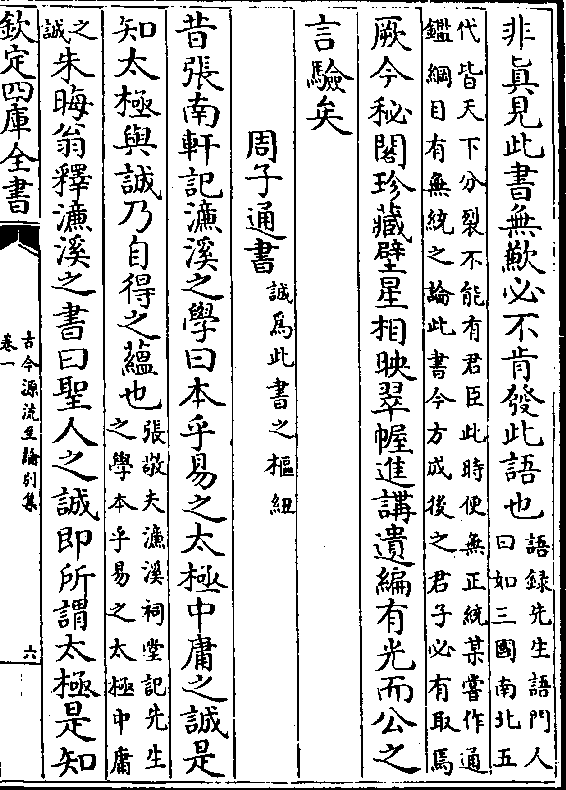 非真見此書無歉必不肯發此語也語録先生語門人
曰如三國南北五
代皆天下分裂不能有君臣此時便無正統某嘗作通
鑑綱目有無統之論此書今方成後之君子必有取焉
厥今秘閣珍藏壁星相映翠幄進講遺編有光而公之
言驗矣
周子通書誠爲此書之樞紐
昔張南軒記濂溪之學曰本乎易之太極中庸之誠是
知太極與誠乃自得之蘊也張敬夫濂溪祠堂記先生
之學本乎易之太極中庸
之
誠
朱晦翁釋濂溪之書曰聖人之誠即所謂太極是知
欽定四庫全書
古今源流至論別集
卷一
六